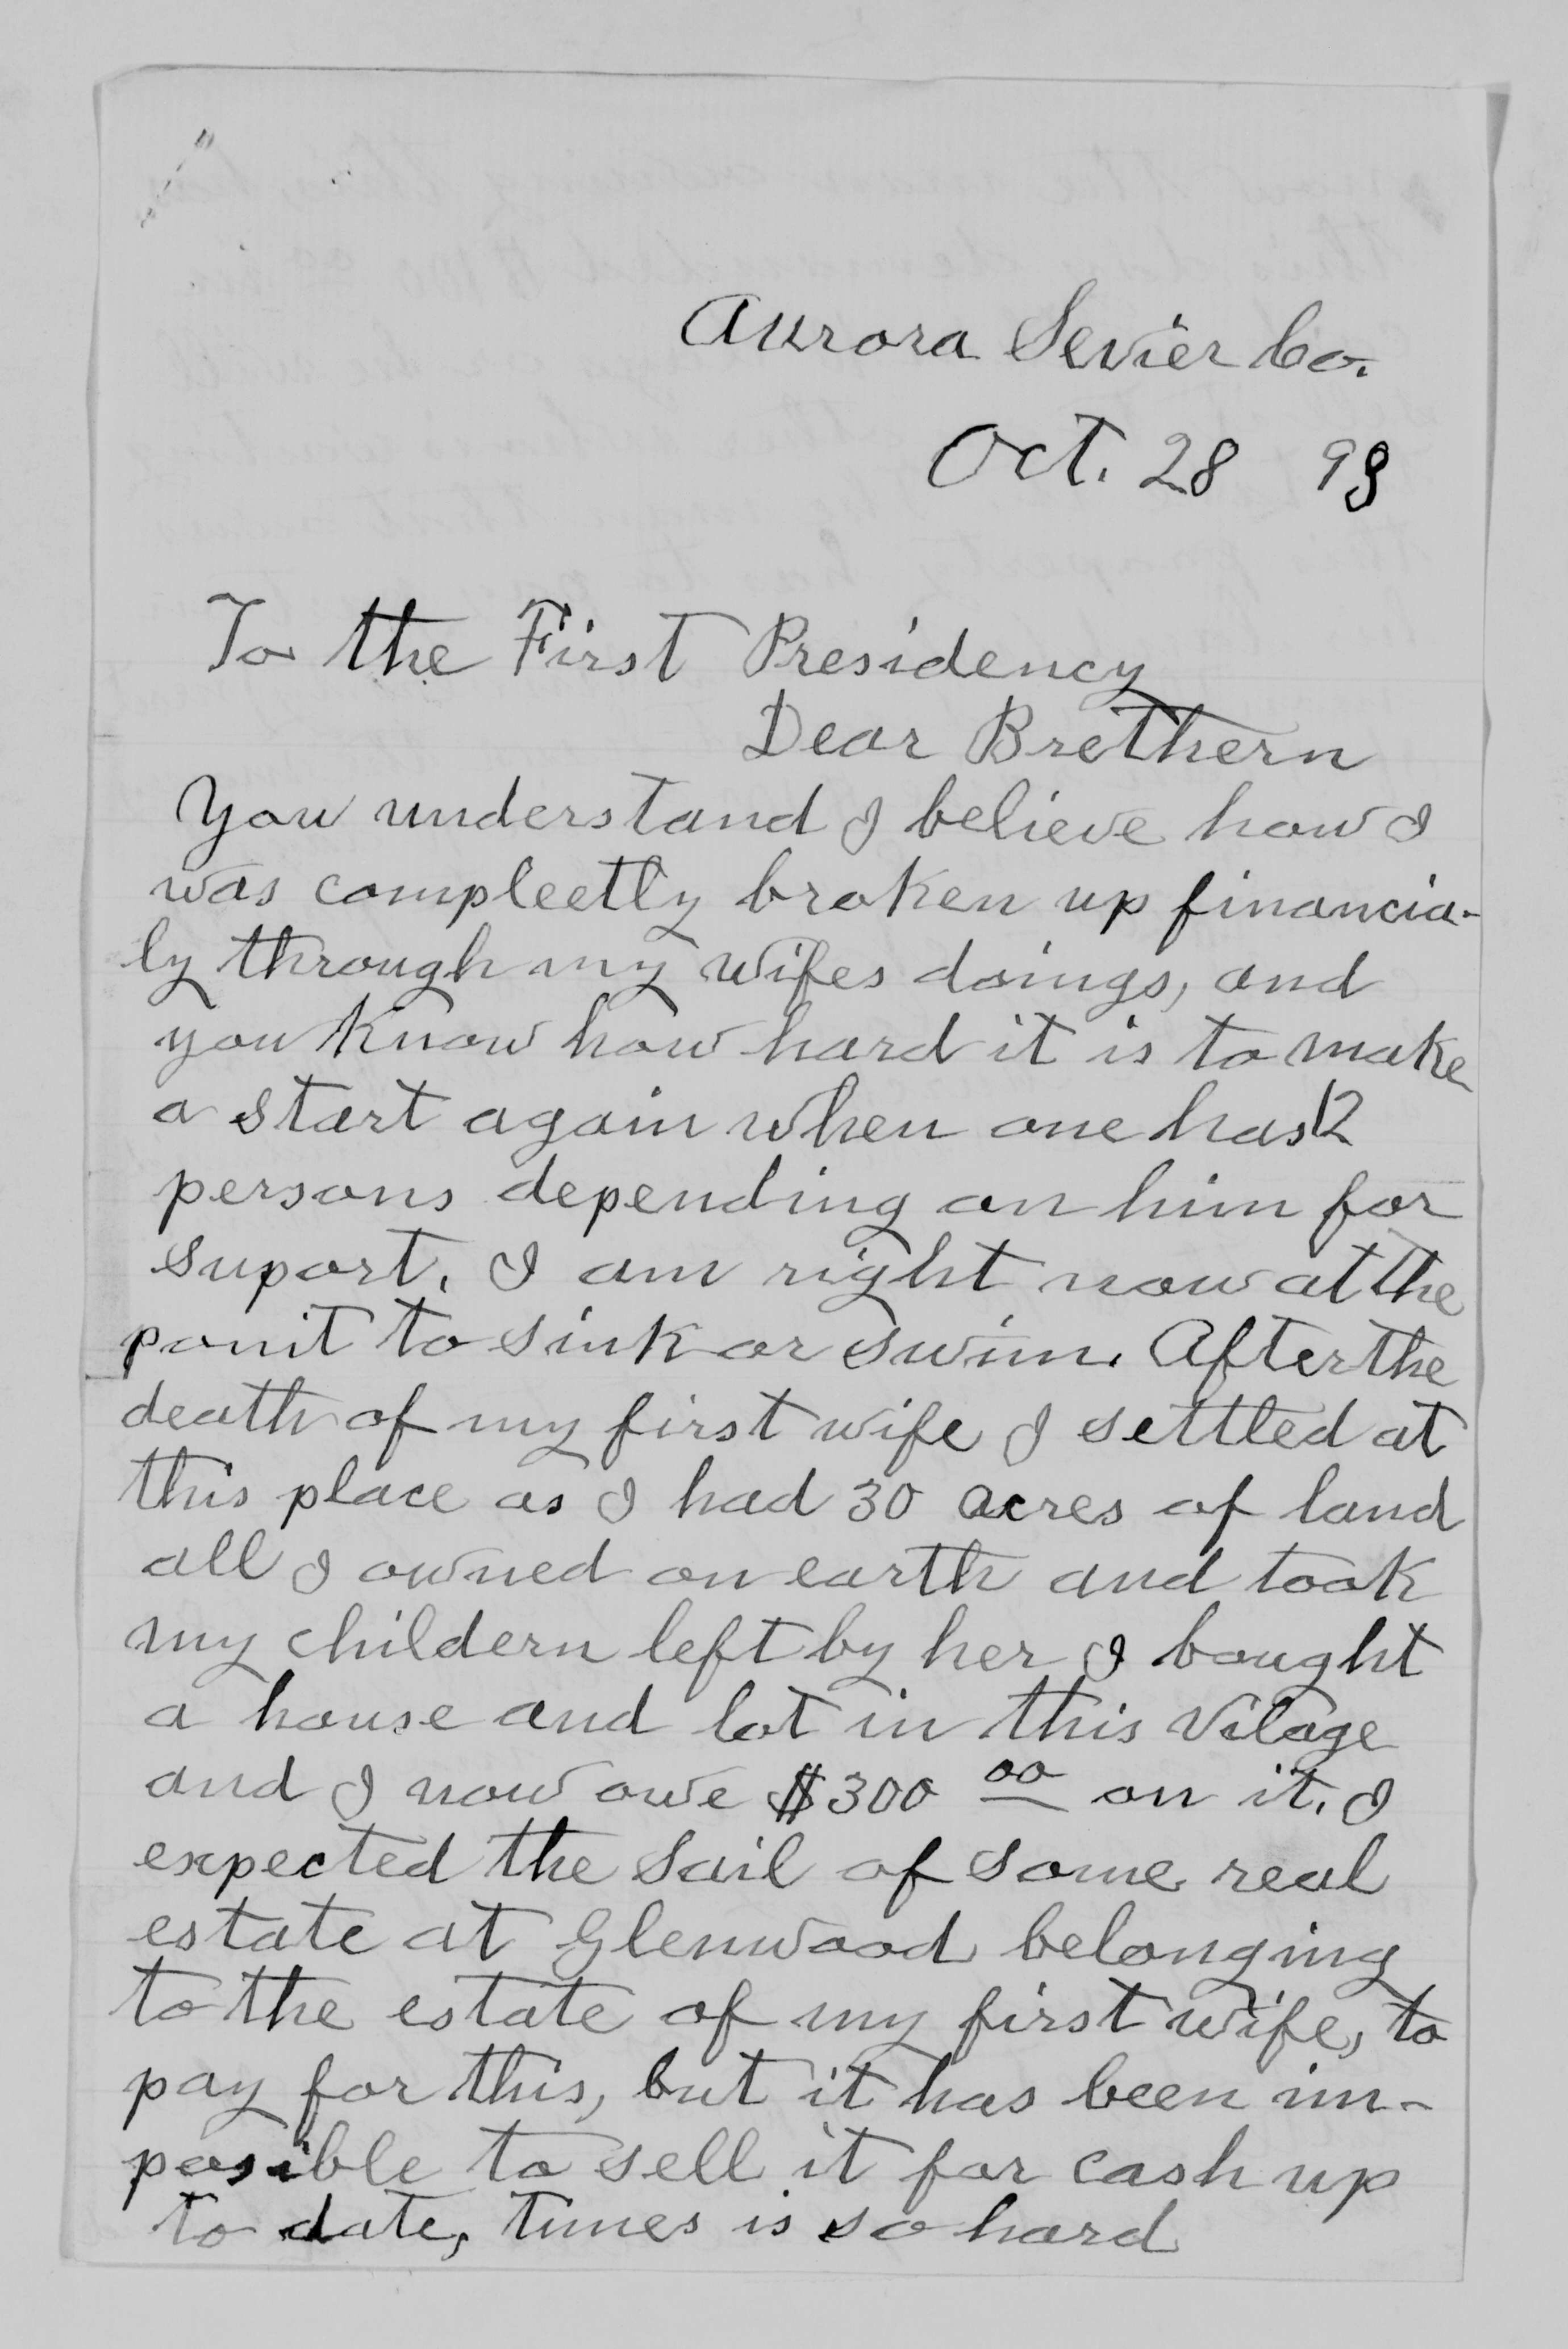 Aurora Sevier Co.
Oct. 28 98
To the First Presidency
Dear Brethern
You understand I believe how I
was compleetly broken up financia-
ly through my wifes doings, and
you know how hard it is to make
a start again when one has 12
persons depending on him for
suport. I am right now at the
ponit to sink or swim. After the
death of my first wife I settled at
this place as I had 30 acres of land
all I owned on earth and took
my childern left by her I bought
a house and lot in this Vilage
and I now owe $300 00 on it. I
expected the sail of some real
estate at Glenwood belonging
to the estate of my first wife, to
pay for this, but it has been im-
posible to sell it for cash up
to date, times is so hard